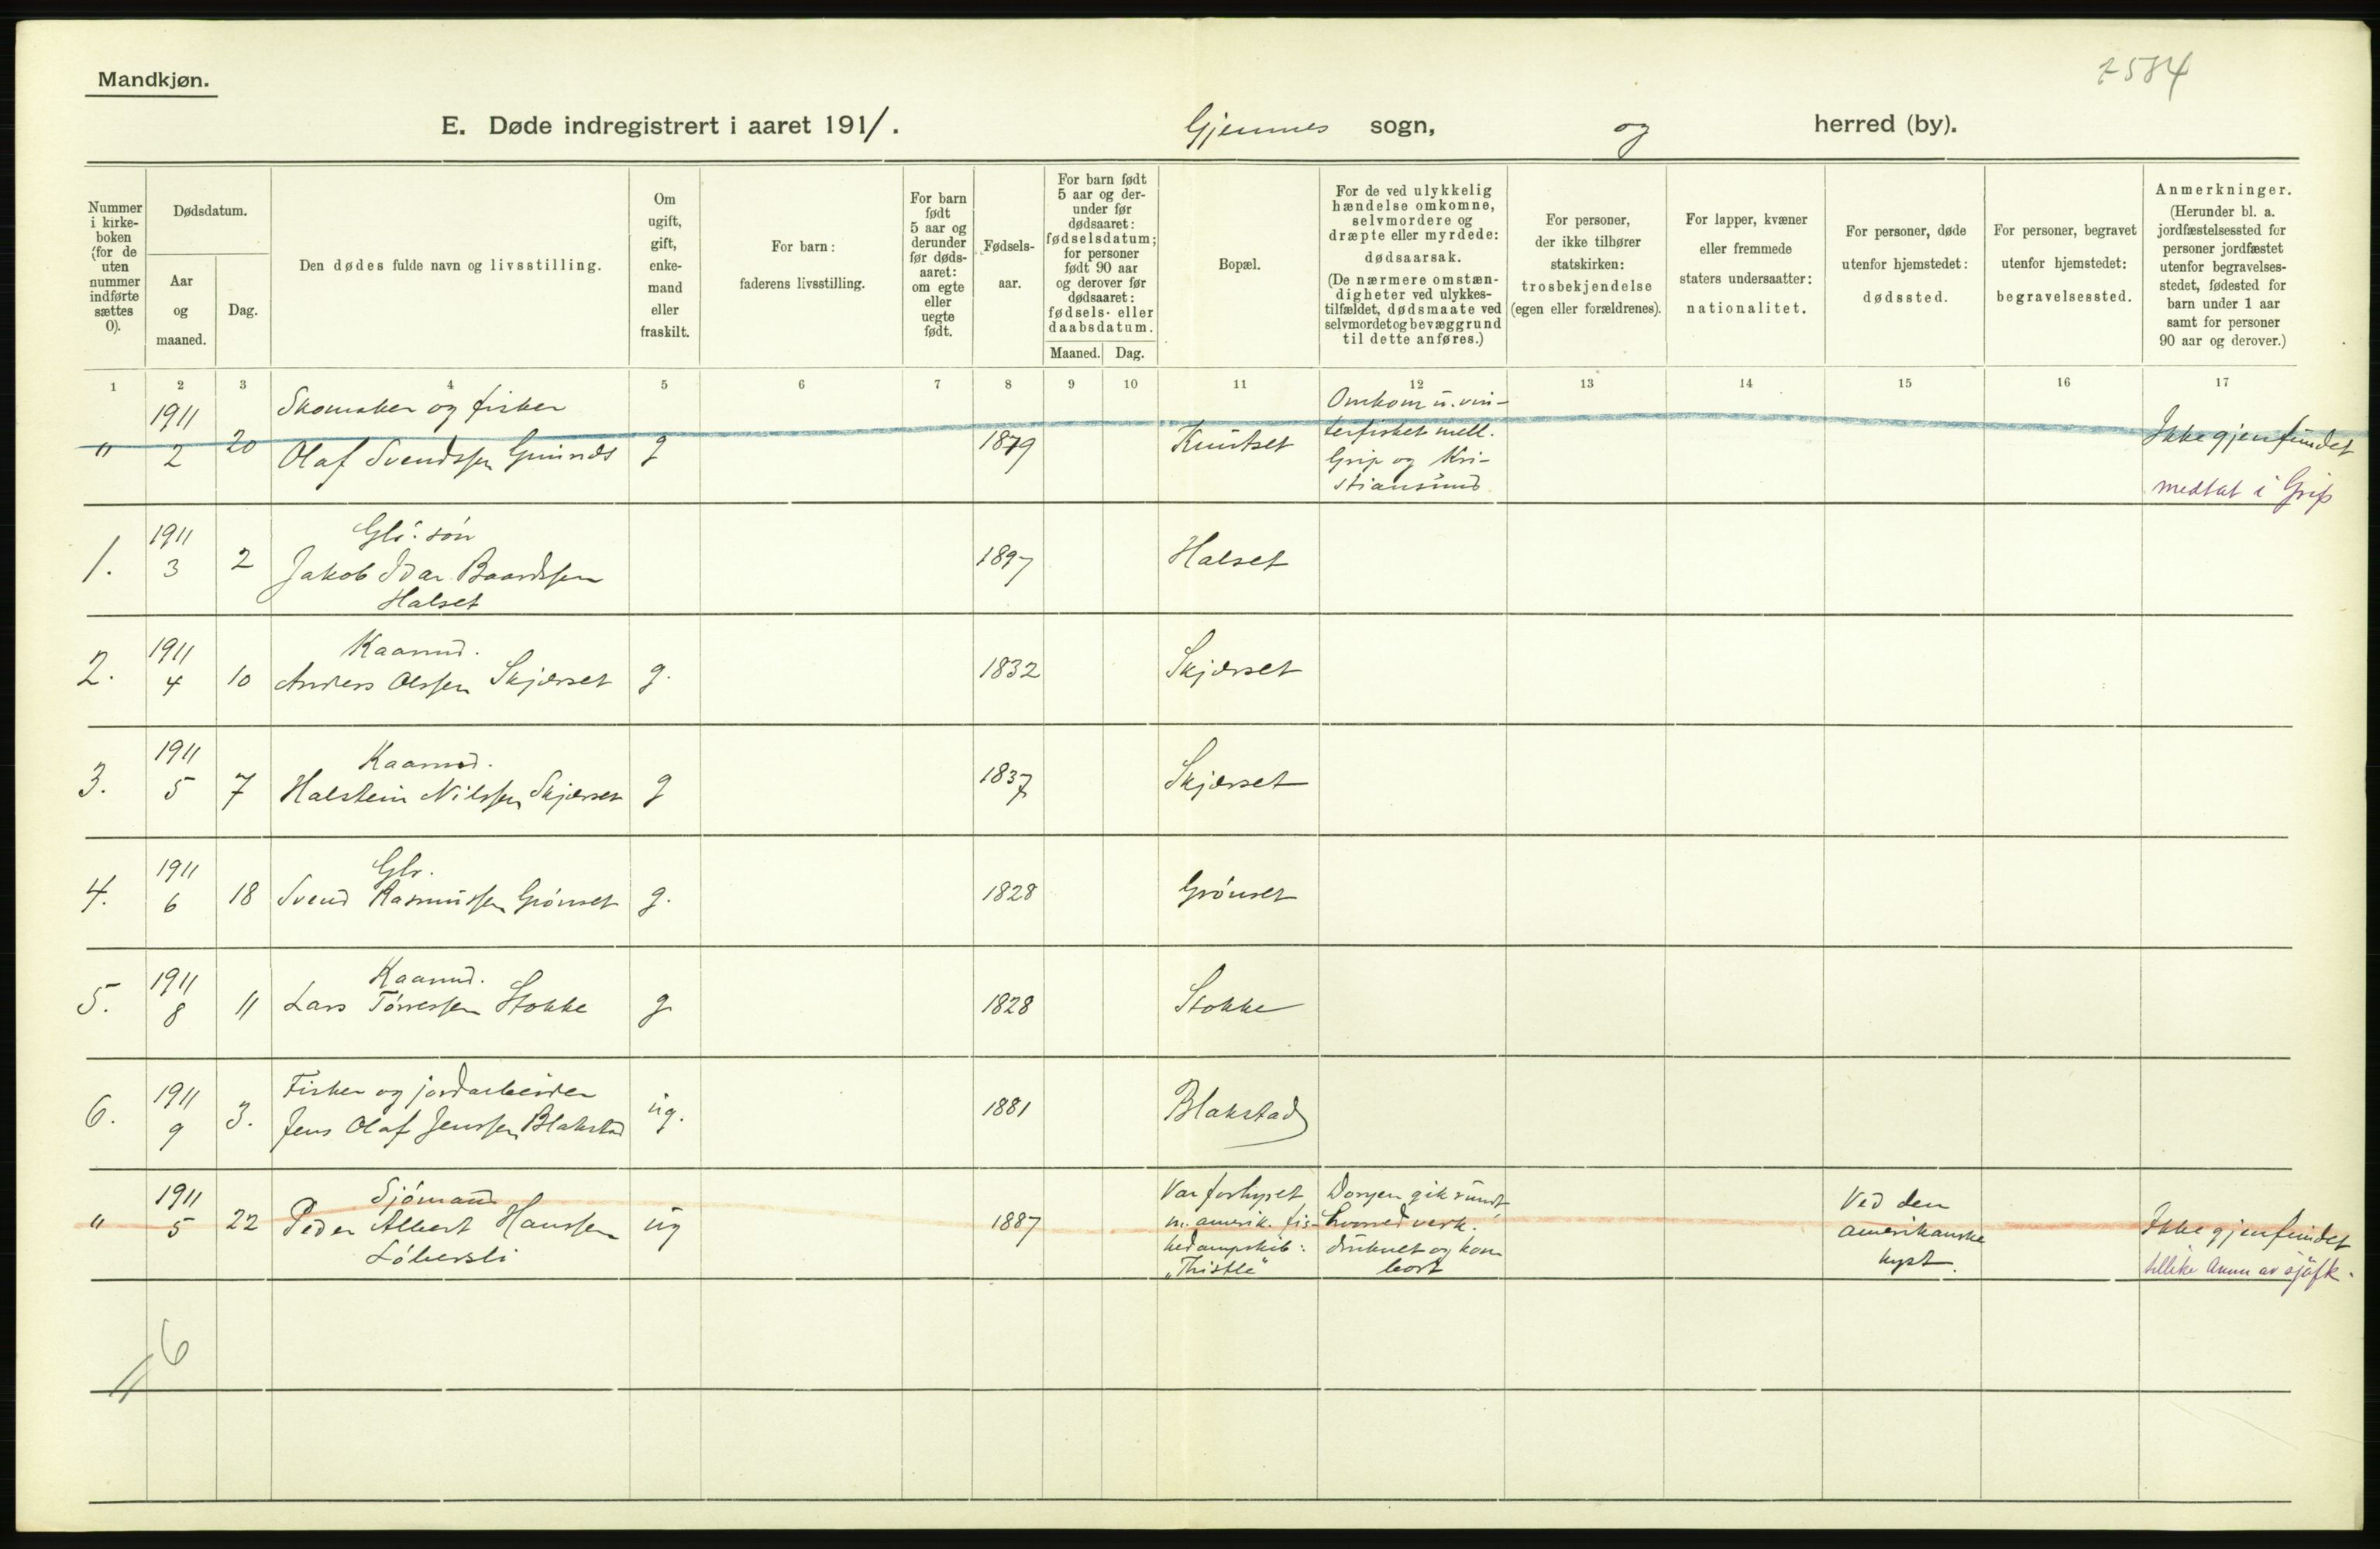 Mandkjøn.
7584
E. Døde indregistrert i aaret 1911. Gjemnes sogn, og herred (by).
Nummer i kirke-boken (for de uten nummer indførte sættes 0).
Dødsdatum.
Aar og maaned.
Dag.
Den dødes fulde navn og livsstilling.
Om ugift, gift, enke-mand eller fraskilt.
For barn: faderens livsstilling.
For barn født 5 aar og derunder før døds-aaret: om egte eller uegte født.
Fødsels-aar.
For barn født 5 aar og der-under før dødsaaret: fødselsdatum; for personer født 90 aar og derover før dødsaaret: fødsels- eller daabsdatum.
Maaned. Dag.
Bopæl.
For de ved ulykkelig hændelse omkomne, selvmordere og dræpte eller myrdede: dødsaarsak.
(De nærmere omstæn-digheter ved ulykkes-tilfældet, dødsmaate ved selvmordet og bevæggrund til dette anføres.)
For personer, der ikke tilhører statskirken: trosbekjendelse (egen eller forældrenes).
For lapper, kvæner eller fremmede staters undersaatter: nationalitet.
For personer, døde utenfor hjemstedet: dødssted.
For personer, begravet utenfor hjemstedet: begravelsessted.
Anmerkninger.
(Herunder bl. a. jordfæstelsessted for personer jordfæstet utenfor begravelses-stedet, fødested for barn under 1 aar samt for personer 90 aar og derover.)
1 2 3 4 5 6 7 8 9 10 11 12 13 14 15 16 17
" 1911 2 20 Skomaker og fisker
Olaf Svendssen g 1879 Knutset
Omkom u. vin-
terfisket mell.
Grip og Kri-
stiansund
Ikke gjenfundet
medtat i Grip
1. 1911 3 2 Gbr. søn
Jakob Ivar Baardssen
Halset
1897 Halset
2. 1911 4 10 Kaarmd.
Anders Olssen Skjærset g. 1832 Skjærset
3. 1911 5 7 Kaarmd.
Halstein Nilssen Skjærset g 1837 Skjærset
4. 1911 6 18 Gbr.
Svend Rasmussen Grönset g. 1828 Grönset
5. 1911 8 11 Kaarmd.
Lars Törressen Stokke g 1828 Stokke
6. 1911 9 3. Fisker og jordarbeider
Jens Olaf Jenssen Blakstad ug. 1881 Blakstad
" 1911 5 22 Sjömand
Peder Albert Hanssen
ug 1887
Var forhyret
m. amerik. fis-
kedampskib:
"Thistle"
Doryen gik rundt
hvorved verk.
druknet og kom
bort
Ved den
amerikanske
kyst.
Ikke gjenfundet
tillike Anm av sjöfk.
6